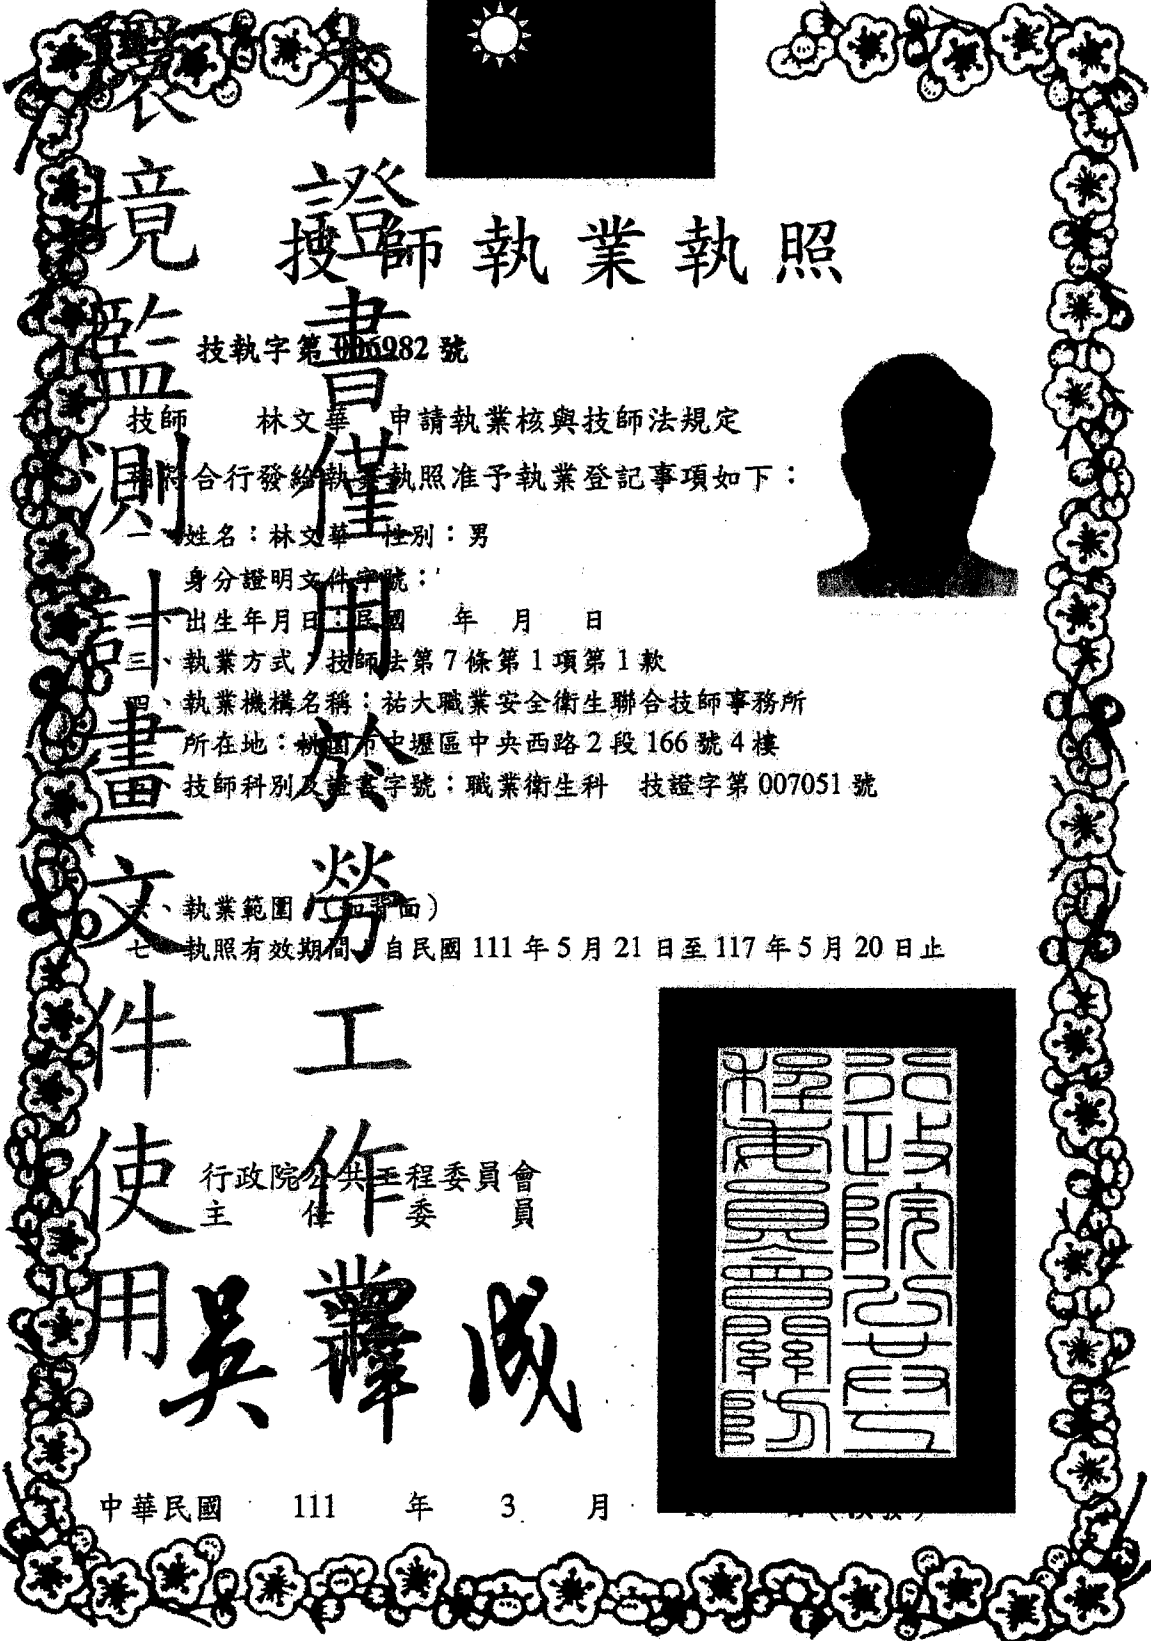 技師執業執照
技執字第006982號
技師 林文華 申請執業核與技師法規定
相符合行發給執業執照准予執業登記事項如下：
一、姓名：林文華 性別：男
身分證明文件字號：
二、出生年月日：民國 年 月 日
三、執業方式：技師法第7條第1項第1款
四、執業機構名稱：祐大職業安全衛生聯合技師事務所
所在地：桃園市中壢區中央西路2段166號4樓
五、技師科別及證書字號：職業衛生科 技證字第007051號
六、執業範圍：（如背面）
七、執照有效期間：自民國111年5月21日至117年5月20日止
行政院公共工程委員會
主任委員
吳澤成
中華民國 111 年 3 月
本證書僅用於勞工作業
環境監測計畫文件使用
行政院公共工
程委員會關防